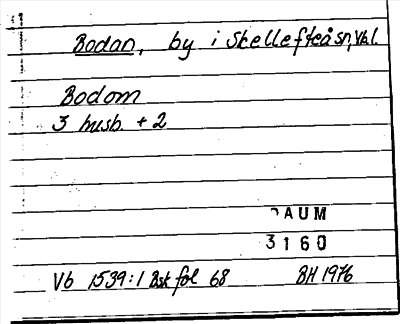 Bodan, by i Skellefteå sn, Vb.
Bodom
3 husb. + 2
DAUM
3160
Vb 1539:1 Bsk fol 68 BH 1976